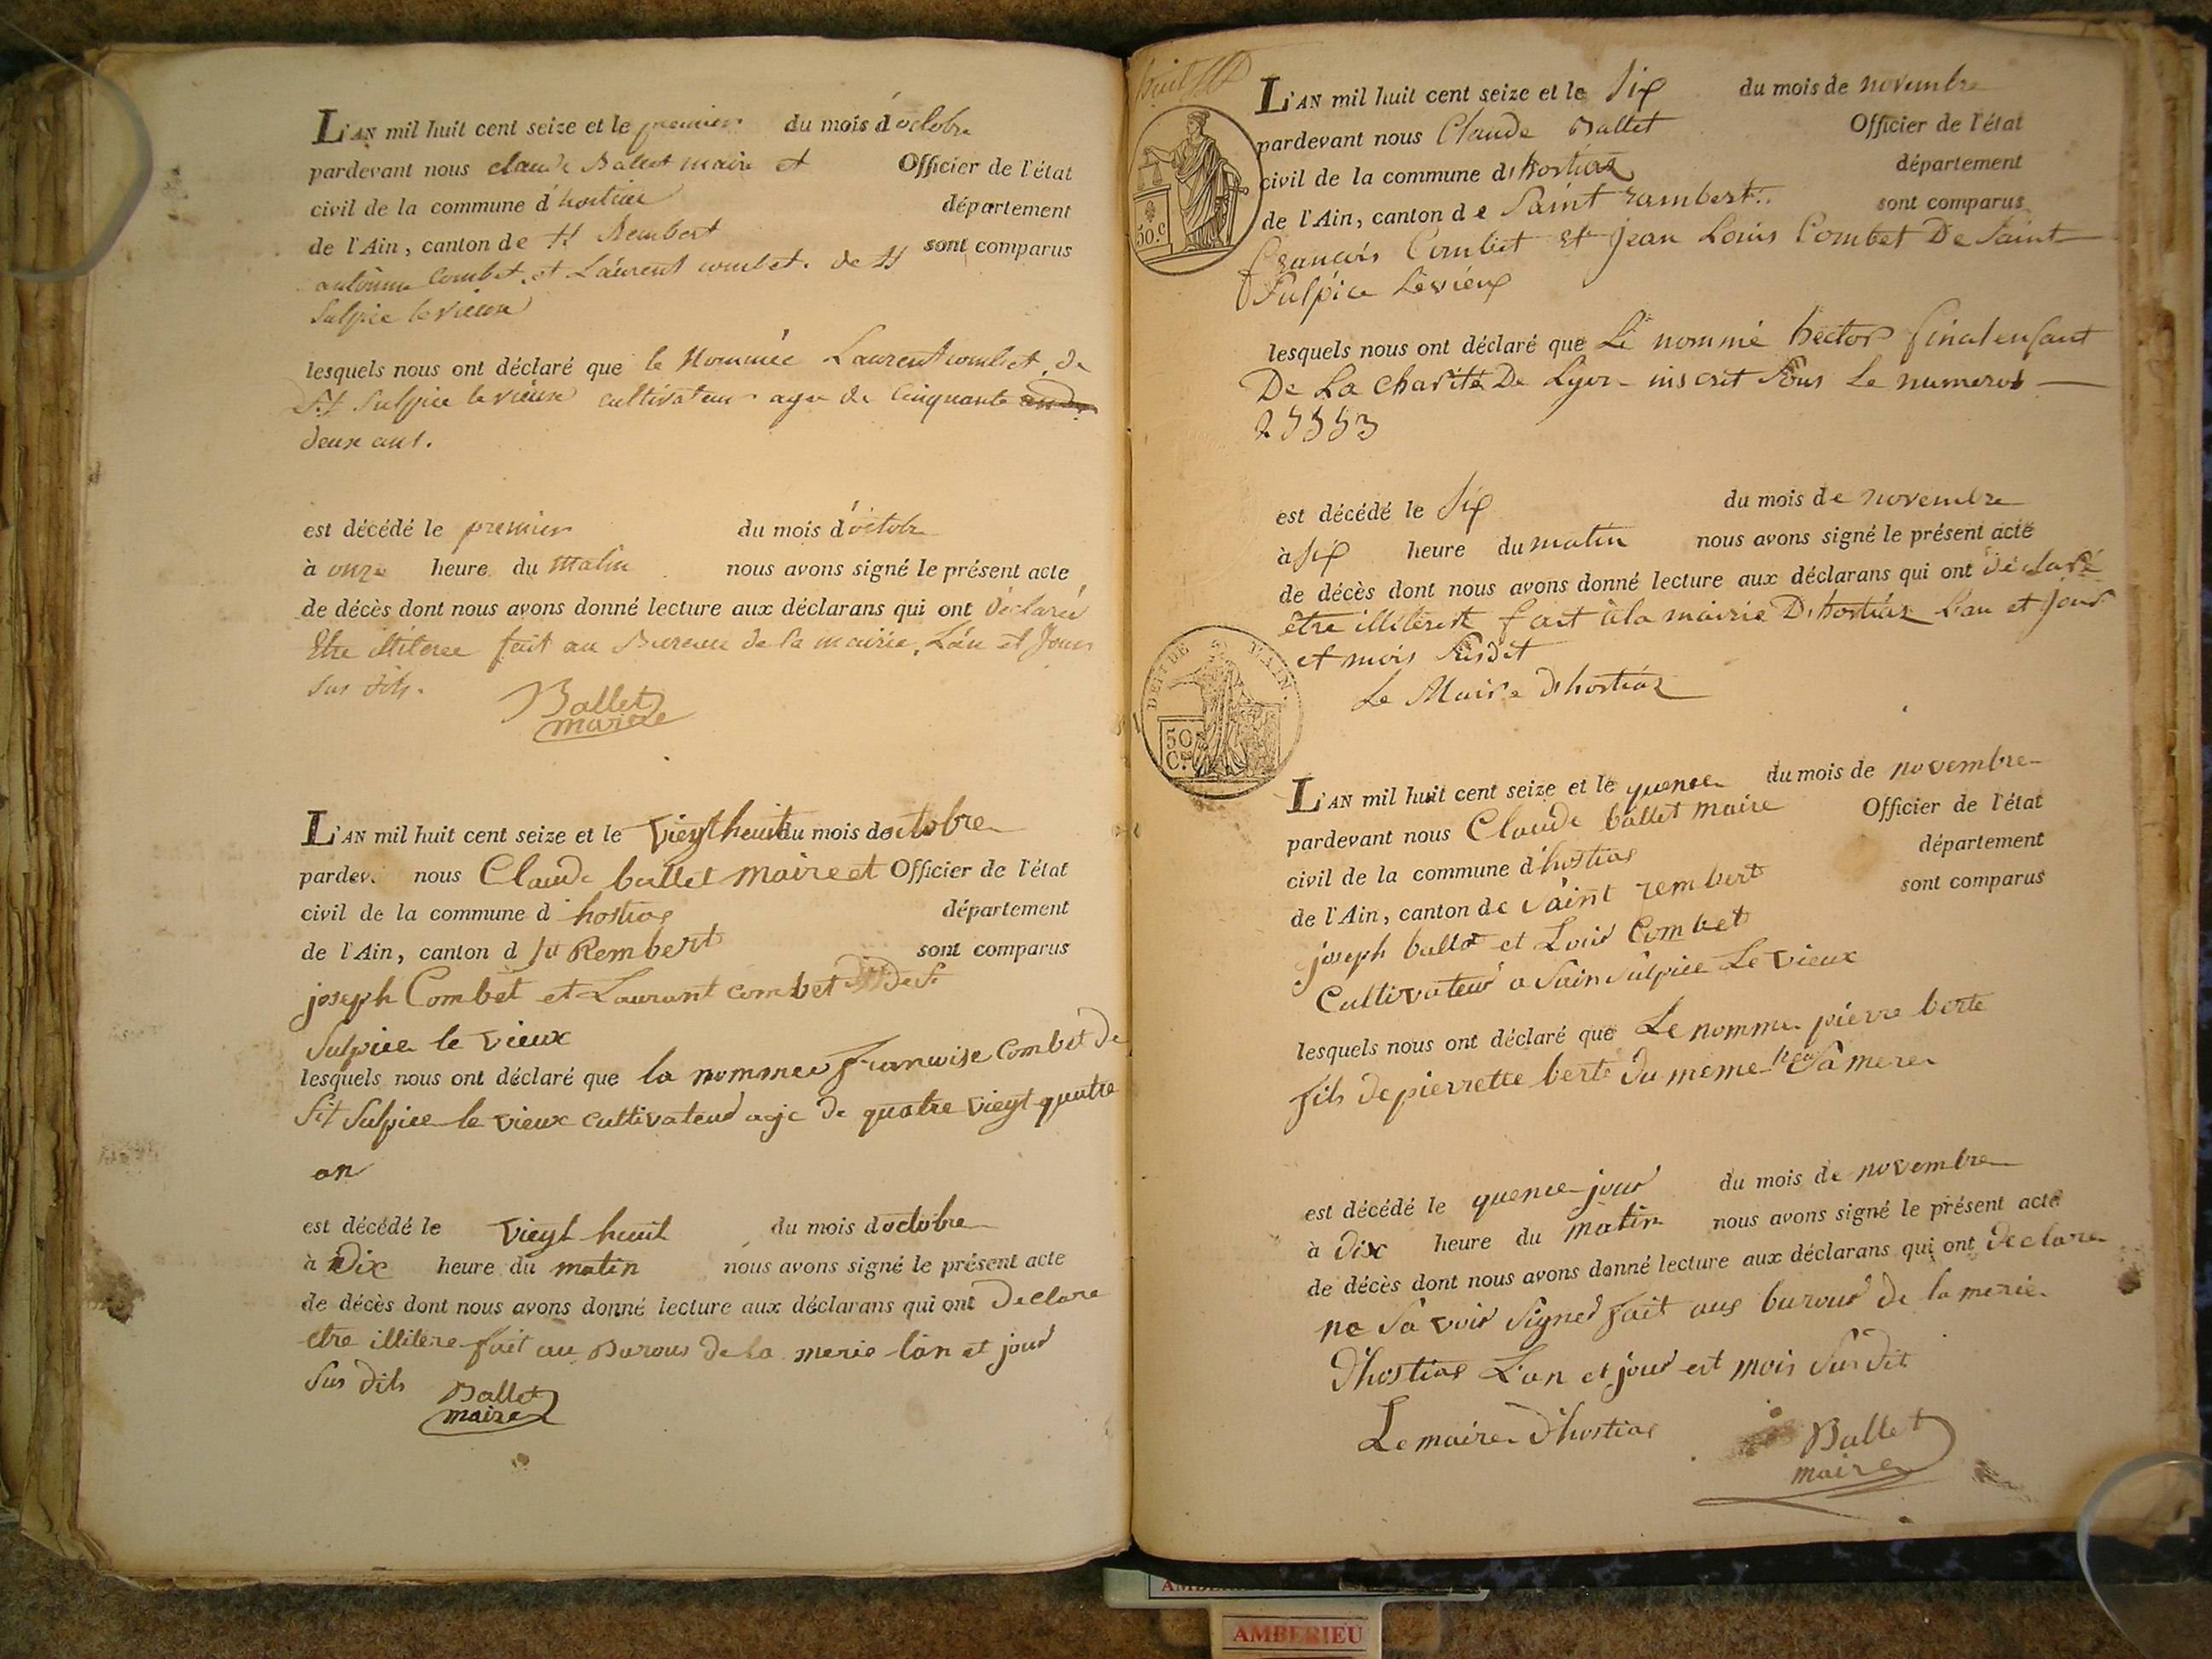 L'AN mil huit cent seize et le premier du mois d'octobre
pardevant nous claude Ballet maire et Officier de l'état
civil de la commune d'hostiaz département
de l'Ain, canton de St Rembert sont comparus
antoinne Combet et Laurent combet. de St
Sulpice le vieux
lesquels nous ont déclaré que le Nommée Laurent combet, de
St Sulpice le vieux cultivateur age de Cinquante
deux ans.
est décédé le premier du mois d'octobre
à onze heure du matin nous avons signé le présent acte
de décès dont nous avons donné lecture aux déclarans qui ont déclarée
Etre illiteree fait au Bureau de la mairie, L'an et Jour
sus dits.
Ballet
maire
L'AN mil huit cent seize et le vieyt heuit du mois doctobre
pardev. nous Claude ballet maire et Officier de l'état
civil de la commune d hostias département
de l'Ain, canton d st Rembert sont comparus
joseph Combet et Laurant combet de St
Sulpice le vieux
lesquels nous ont déclaré que la nommee francoise Combet de
St Sulpice le vieux cultivateur age de quatre vieyt quatre
an
est décédé le vieyt heuit du mois doctobre
à Dix heure du matin nous avons signé le présent acte
de décès dont nous avons donné lecture aux déclarans qui ont declare
etre illitere fait au Burous de la merie l'an et jour
sus dits
Ballet
maire
L'AN mil huit cent seize et le six du mois de novembre
pardevant nous Claude Ballet Officier de l'état
civil de la commune d'hostiaz département
de l'Ain, canton de Saint rambert sont comparus
francois Combet et jean Louis Combet De Saint
Sulpice Levieux
lesquels nous ont déclaré que Le nommé hector final enfant
De La charité De Lyon inscrit Sous Le numeros
est décédé le six du mois de novembre
à six heure du matin nous avons signé le présent acte
de décès dont nous avons donné lecture aux déclarans qui ont déclaré
être illiterest fait à la mairie D'hostiaz L'an et jour
et mois susdit
Le Maire D'hostiaz
50.c
DEPT DE L'AIN.
50
C.
L'AN mil huit cent seize et le quence du mois de novembre
pardevant nous Claude ballet maire Officier de l'état
civil de la commune d'hostias département
de l'Ain, canton de saint rembert sont comparus
joseph ballet et Louis Combet
Cultivateur a Sain Sulpice Le vieux
lesquels nous ont déclaré que Le nomme pierre berte
fils de pierrette berte du meme Sa mere
est décédé le quence jour du mois de novembre
à dix heure du matin nous avons signé le présent acte
de décès dont nous avons donné lecture aux déclarans qui ont declare
ne Savoir Signer fait aus burous de la merie
d'hostias L'an et jour et mois Sus dit
Le maire d'hostias
Ballet
maire
AMBERIEU